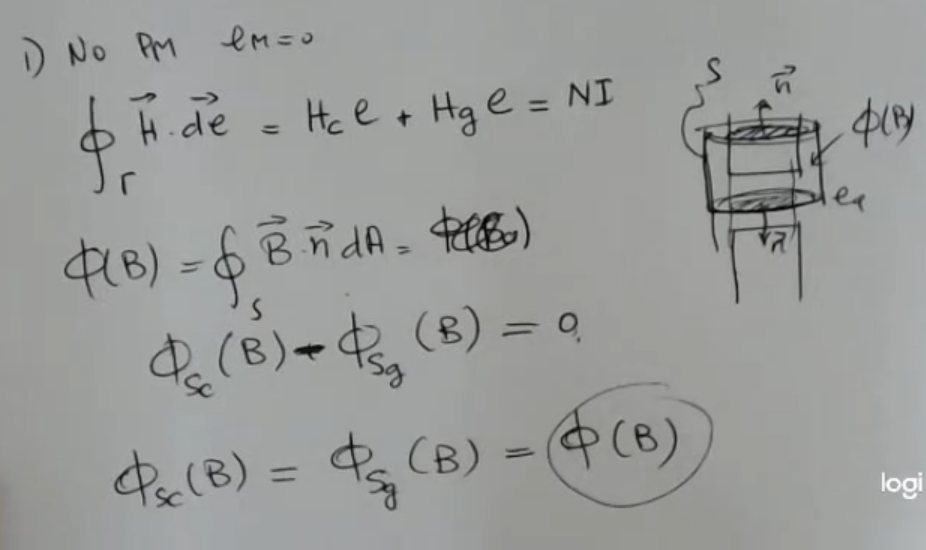 1) No PM eM=0
∮Γ H⃗ . de⃗ = Hc e + Hg e = NI
Φ(B) = ∮S B⃗ . n⃗ dA =
ΦSc (B) - ΦSg (B) = 0.
ΦSc (B) = ΦSg (B) = Φ(B)
S n⃗
Φ(B)
n⃗
logi